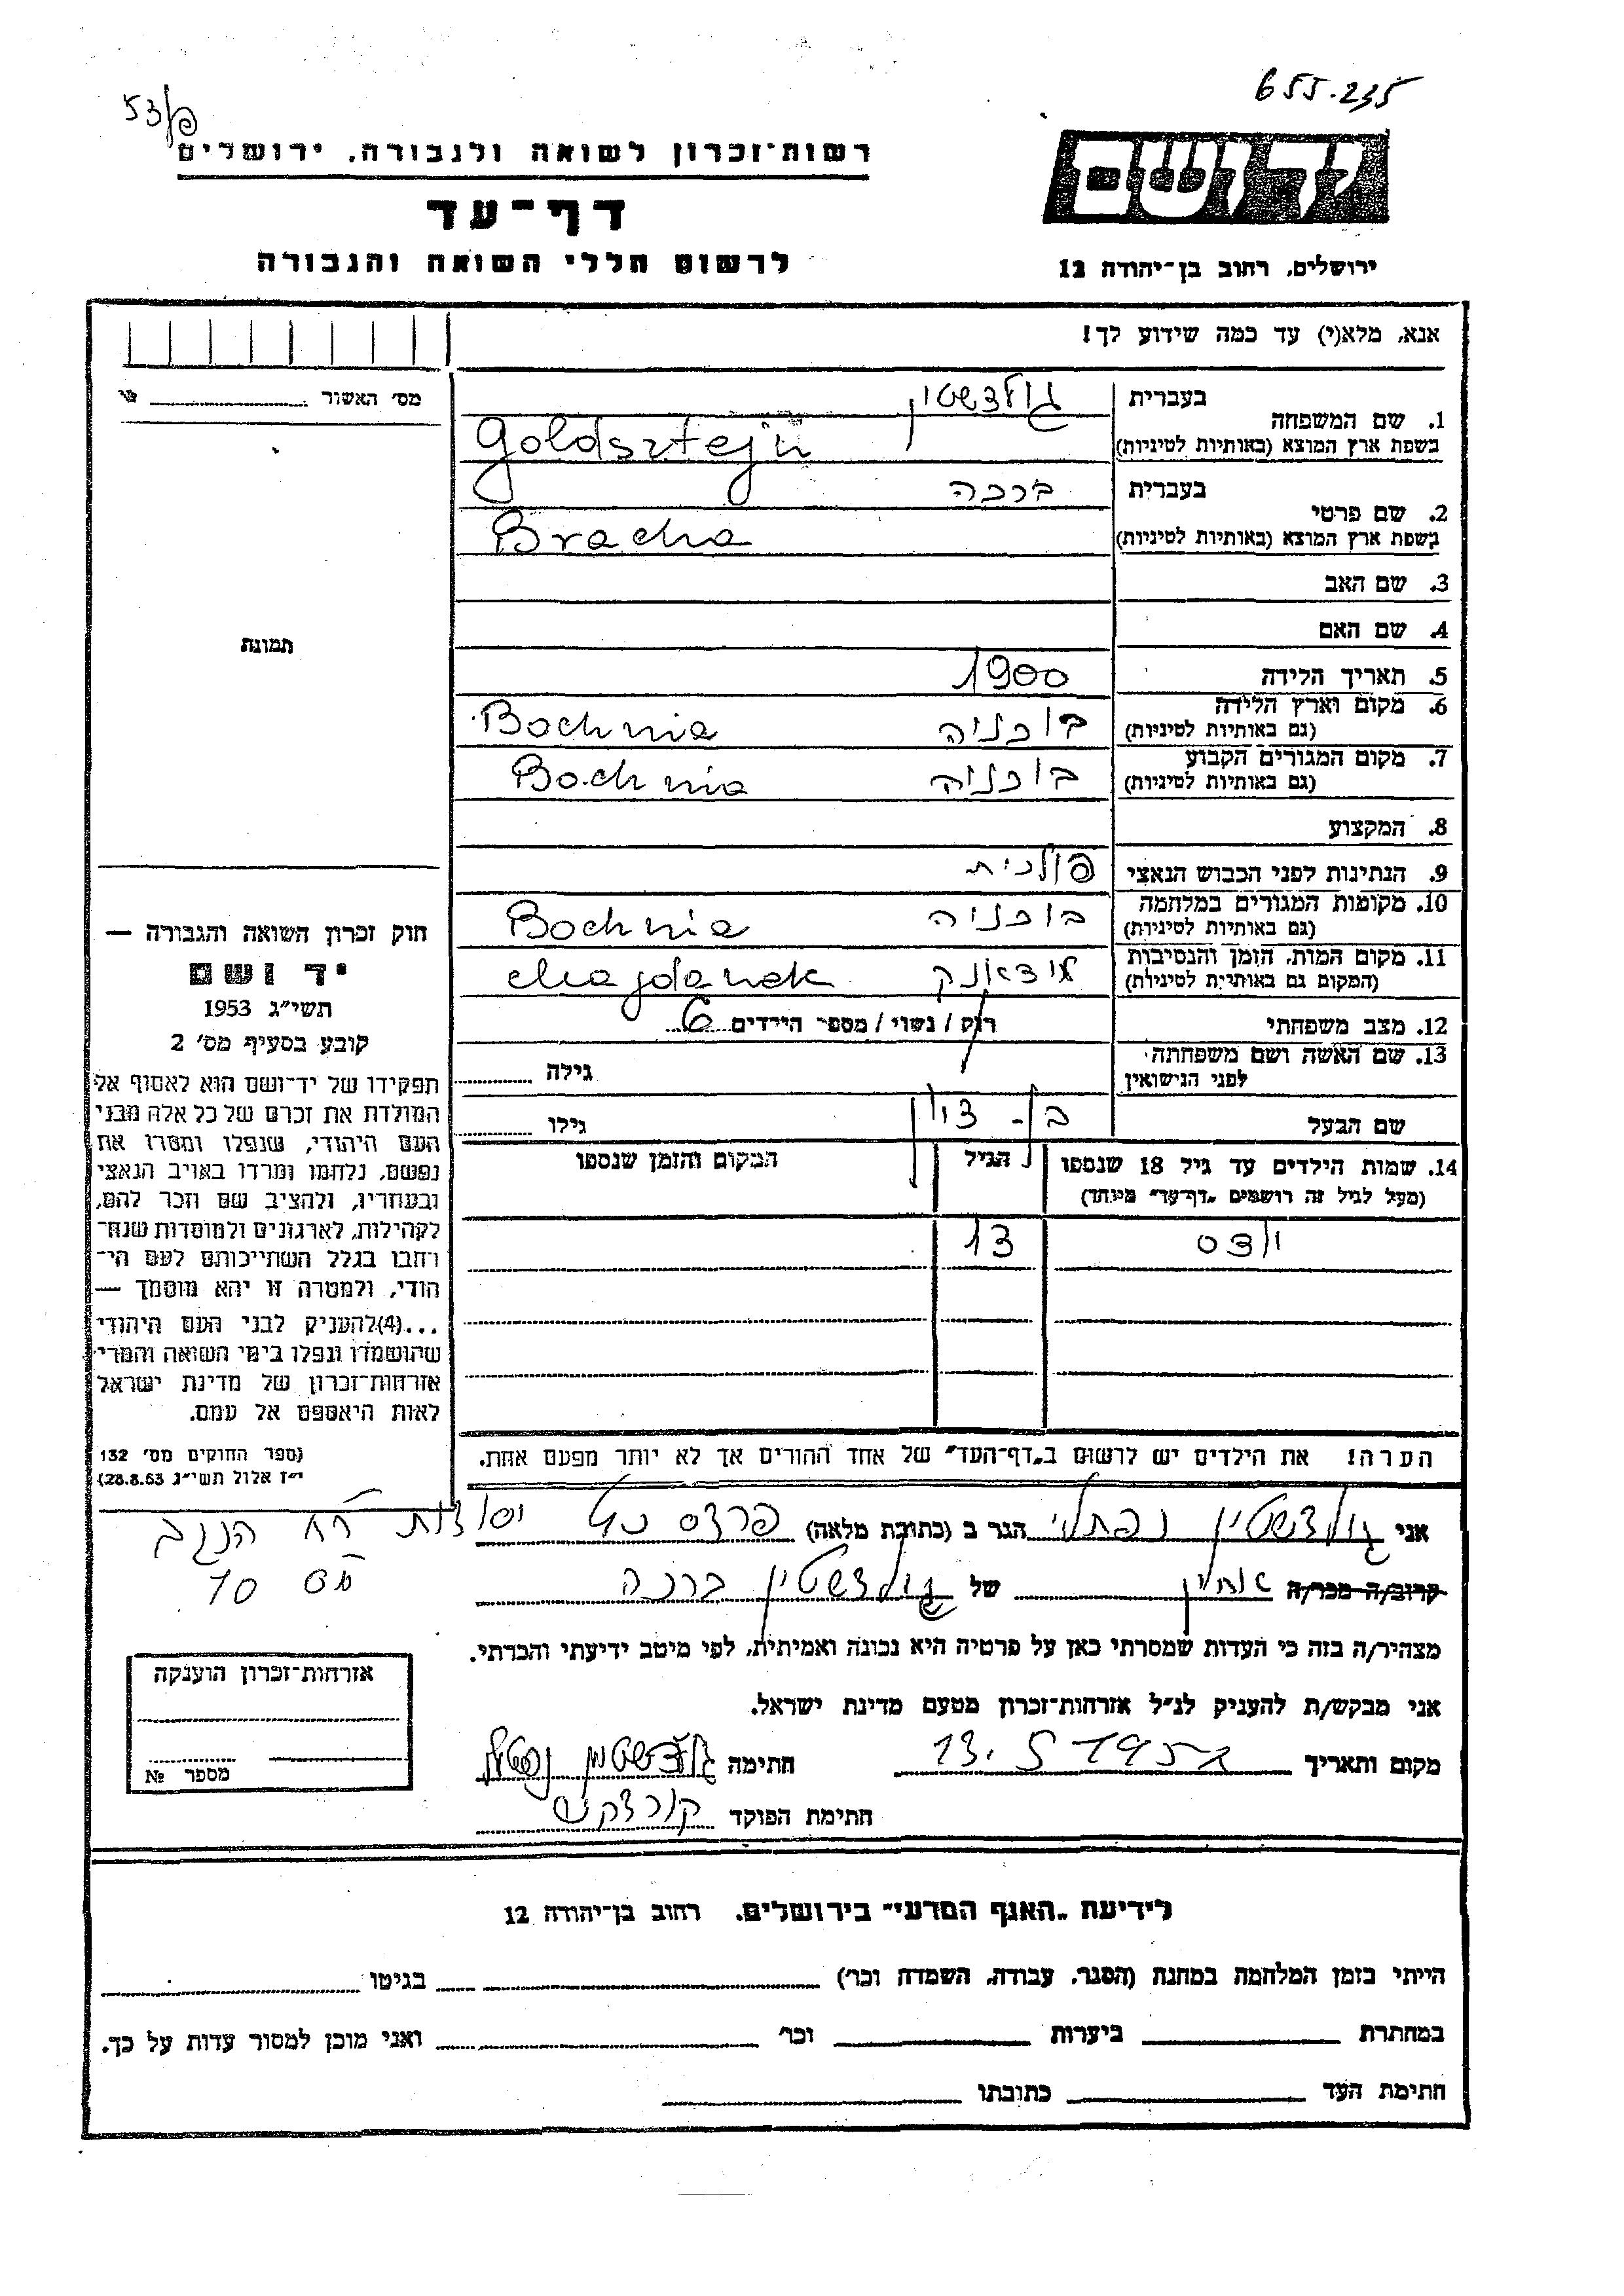 655.235
53/פ
יד ושם
ירושלים, רחוב בן־יהודה 12
רשות־זכרון לשואה ולגבורה, ירושלים
דף־עד
לרשום חללי השואה והגבורה
אנא, מלא(י) עד כמה שידוע לך!
מס׳ האשור
1. שם המשפחה
בעברית גולדשטין
בשפת ארץ המוצא (באותיות לטיניות) Goldsztejn
2. שם פרטי
בעברית ברכה
בשפת ארץ המוצא (באותיות לטיניות) Bracha
3. שם האב
4. שם האם
5. תאריך הלידה 1900
6. מקום וארץ הלידה
(גם באותיות לטיניות) בוכניה Bochnia
7. מקום המגורים הקבוע
(גם באותיות לטיניות) בוכניה Bochnia
8. המקצוע
9. הנתינות לפני הכבוש הנאצי פולנית
10. מקומות המגורים במלחמה
(גם באותיות לטיניות) בוכניה Bochnia
11. מקום המות, הזמן והנסיבות
(המקום גם באותיות לטיניות) מידאנק Majdanek
12. מצב משפחתי רוק / נשוי / מספר הילדים 6
13. שם האשה ושם משפחתה
לפני הנישואין גילה
שם הבעל בן־ציון גילו
14. שמות הילדים עד גיל 18 שנספו הגיל המקום והזמן שנספו
(מעל לגיל זה רושמים „דף־עד” מיוחד)
13
הערה! את הילדים יש לרשום ב„דף־העד” של אחד ההורים אך לא יותר מפעם אחת.
תמונת
חוק זכרון השואה והגבורה —
יד ושם
תשי״ג 1953
קובע בסעיף מס׳ 2
תפקידו של יד־ושם הוא לאסוף אל
המולדת את זכרם של כל אלה מבני
העם היהודי, שנפלו ומסרו את
נפשם, נלחמו ומרדו באויב הנאצי
ובעוזריו, ולהציב שם וזכר להם,
לקהילות, לארגונים ולמוסדות שנח־
רבו בגלל השתייכותם לעם הי־
הודי, ולמטרה זו יהא מוסמך —
...(4)להעניק לבני העם היהודי
שהושמדו ונפלו בימי השואה והמרי
אזרחות־זכרון של מדינת ישראל
לאות היאספם אל עמם.
(ספר החוקים מס׳ 132
י״ז אלול תשי״ג 28.8.53)
אני גולדשטין נפתלי הגר ב (כתובת מלאה) פרדס כץ רח הנגב
מס 10
קרוב/ה מכר/ה של גולדשטין ברכה
מצהיר/ה בזה כי העדות שמסרתי כאן על פרטיה היא נכונה ואמיתית, לפי מיטב ידיעתי והכרתי.
אני מבקש/ת להעניק לנ״ל אזרחות־זכרון מטעם מדינת ישראל.
מקום ותאריך 13. 5 195 חתימה גולדשטין נפתלי
חתימת הפוקד
אזרחות־זכרון הוענקה
מספר №
לידיעת „האגף המדעי” בירושלים, רחוב בן־יהודה 12
הייתי בזמן המלחמה במחנה (הסגר, עבודה, השמדה וכר׳) בגיטו
במחתרת ביערות וכר׳ ואני מוכן למסור עדות על כך.
חתימת העד כתובתו